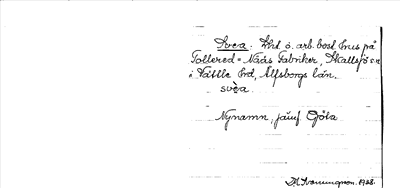 Svea: Xht o. arb. bost. hus på
Tollered = Nääs Fabriker, Skallsjö sn
i Vättle hd, Älfsborgs län.
svèa
Nynamn, jämf Göta
1928.